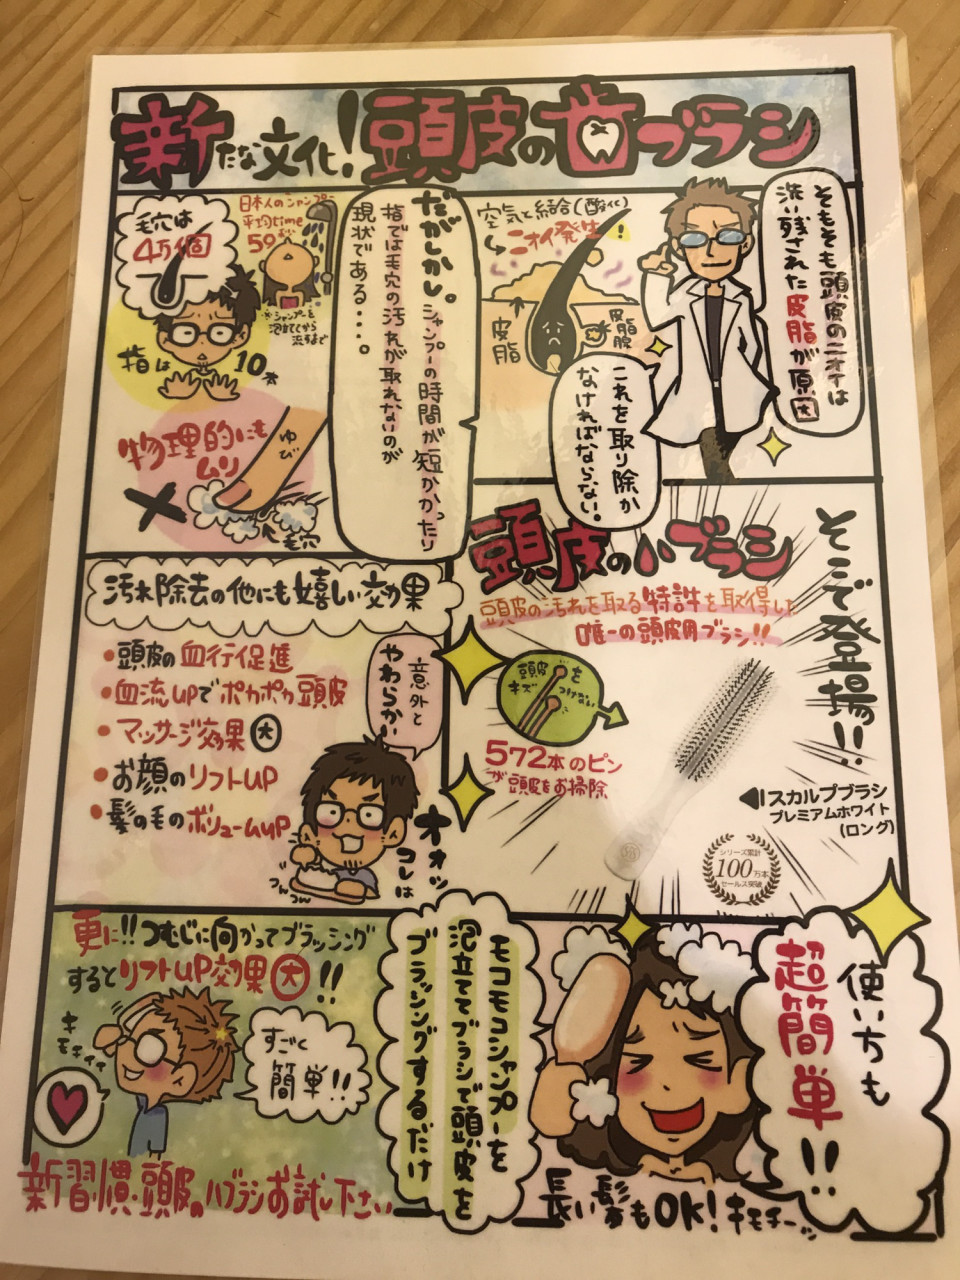 新たな文化!頭皮の歯ブラシ
そもそも頭皮のニオイは
洗い残された皮脂が原因
空気と結合(酸化)
ニオイ発生!
皮脂
皮脂腺
これを取り除か
なければならない。
だがしかし。シャンプーの時間が短かかったり
指では毛穴の汚れが取れないのが
現状である・・・。
日本人のシャンプー
平均time
※シャンプーを
泡立ててから
流すまで
毛穴は
4万個
指は10本
物理的にも
ムリ
ゆび
毛穴
そこで登場!!
頭皮のハブラシ
頭皮の汚れを取る特許を取得した
唯一の頭皮用ブラシ!!
頭皮を
キズつけない
572本のピン
が頭皮をお掃除
スカルプブラシ
プレミアムホワイト
(ロング)
シリーズ累計
100万本
セールス突破
汚れ除去の他にも嬉しい効果
・頭皮の血行促進
・血流UPでポカポカ頭皮
・マッサージ効果大
・お顔のリフトUP
・髪の毛のボリュームUP
意外と
やわらかい
オォッ
コレは
つん
つん
使い方も
超簡単!!
モコモコシャンプーを
泡立ててブラシで頭皮を
ブラッシングするだけ
長い髪もOK!キモチーッ
更に!!つむじに向かってブラッシング
するとリフトUP効果大!!
キモチィィ
すごく
簡単!!
新習慣・頭皮のハブラシお試し下さい